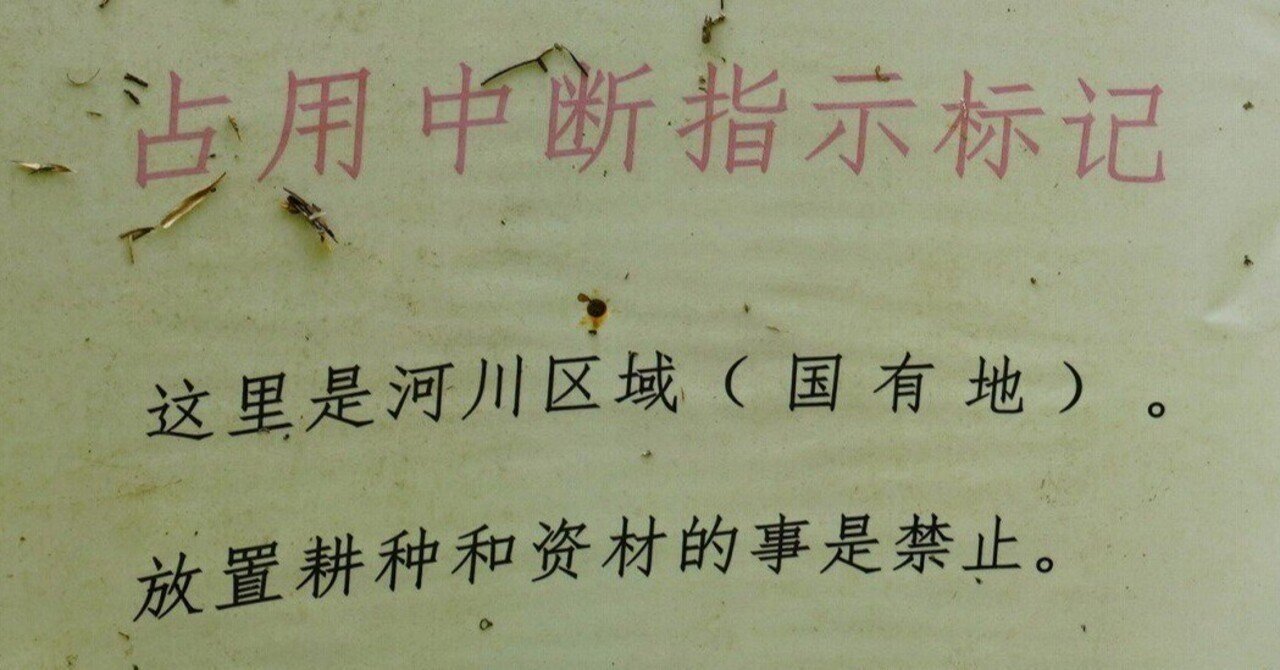 占用中断指示标记
这里是河川区域（国有地）。
放置耕种和资材的事是禁止。